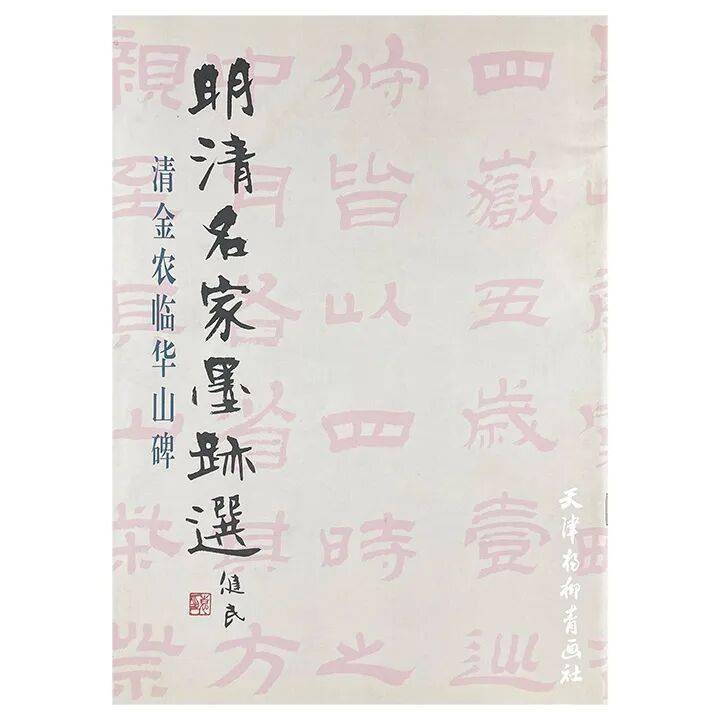 明清名家墨跡選
健民
清金农临华山碑
天津杨柳青画社
四嶽五歲壹巡
狩皆以四時之
中月各省其方